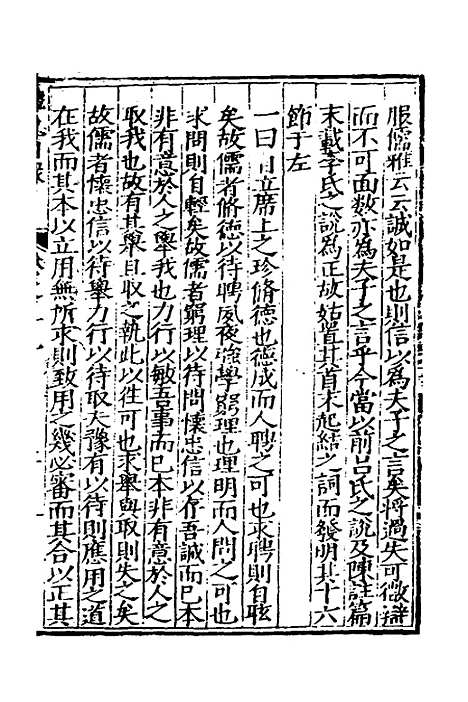 服儒雅云云誠如是也則信以為夫子之言矣將過失可微辯
而不可面數亦為夫子之言乎今當以前吕氏之說及陳註篇
末載李氏之說為正故姑置其首末起結之詞而發明其十六
節于左
一曰自立席上之珍脩德也德成而人聘之可也求聘則自眩
矣故儒者脩德以待聘夙夜強學窮理也理明而人問之可也
求問則自輕矣故儒者窮理以待問懷忠信以存吾誠而已本
非有意於人之舉我也力行以敏吾事而已本非有意於人之
取我也故有其舉自取之執此以往可也求舉與取則失之矣
故儒者懷忠信以待舉力行以待取夫豫有以待則應用之道
在我而其本以立用無所求則致用之幾必審而其合以正其